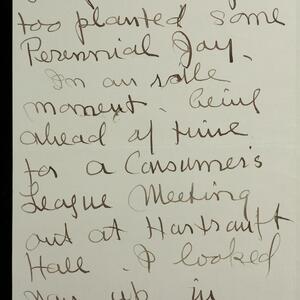 too planted some
Perennial Joy.
In an idle
moment. being
ahead of time
for a Consumer's
League Meeting
out at Hartranft
Hall. I looked
you up in